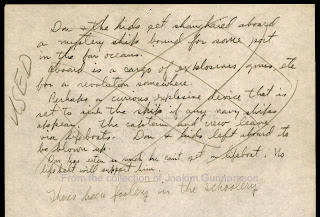 USED
Don & the kids get shanghaied aboard
a mystery ship bound for some port
in the far oceans.
Aboard is a cargo of explosives, guns, etc
for a revolution somewhere.
Perhaps a curious explosive device that is
set to sink the ship if any navy ships
appear, the captain and crew leaving
via lifeboats. Don & kids left aboard to
be blown up.
Don has eaten so much he cant get in lifeboat. No
lifebelt will support him.
From the collection of Joakim Gunnarsson
There been foolery in the schoolery